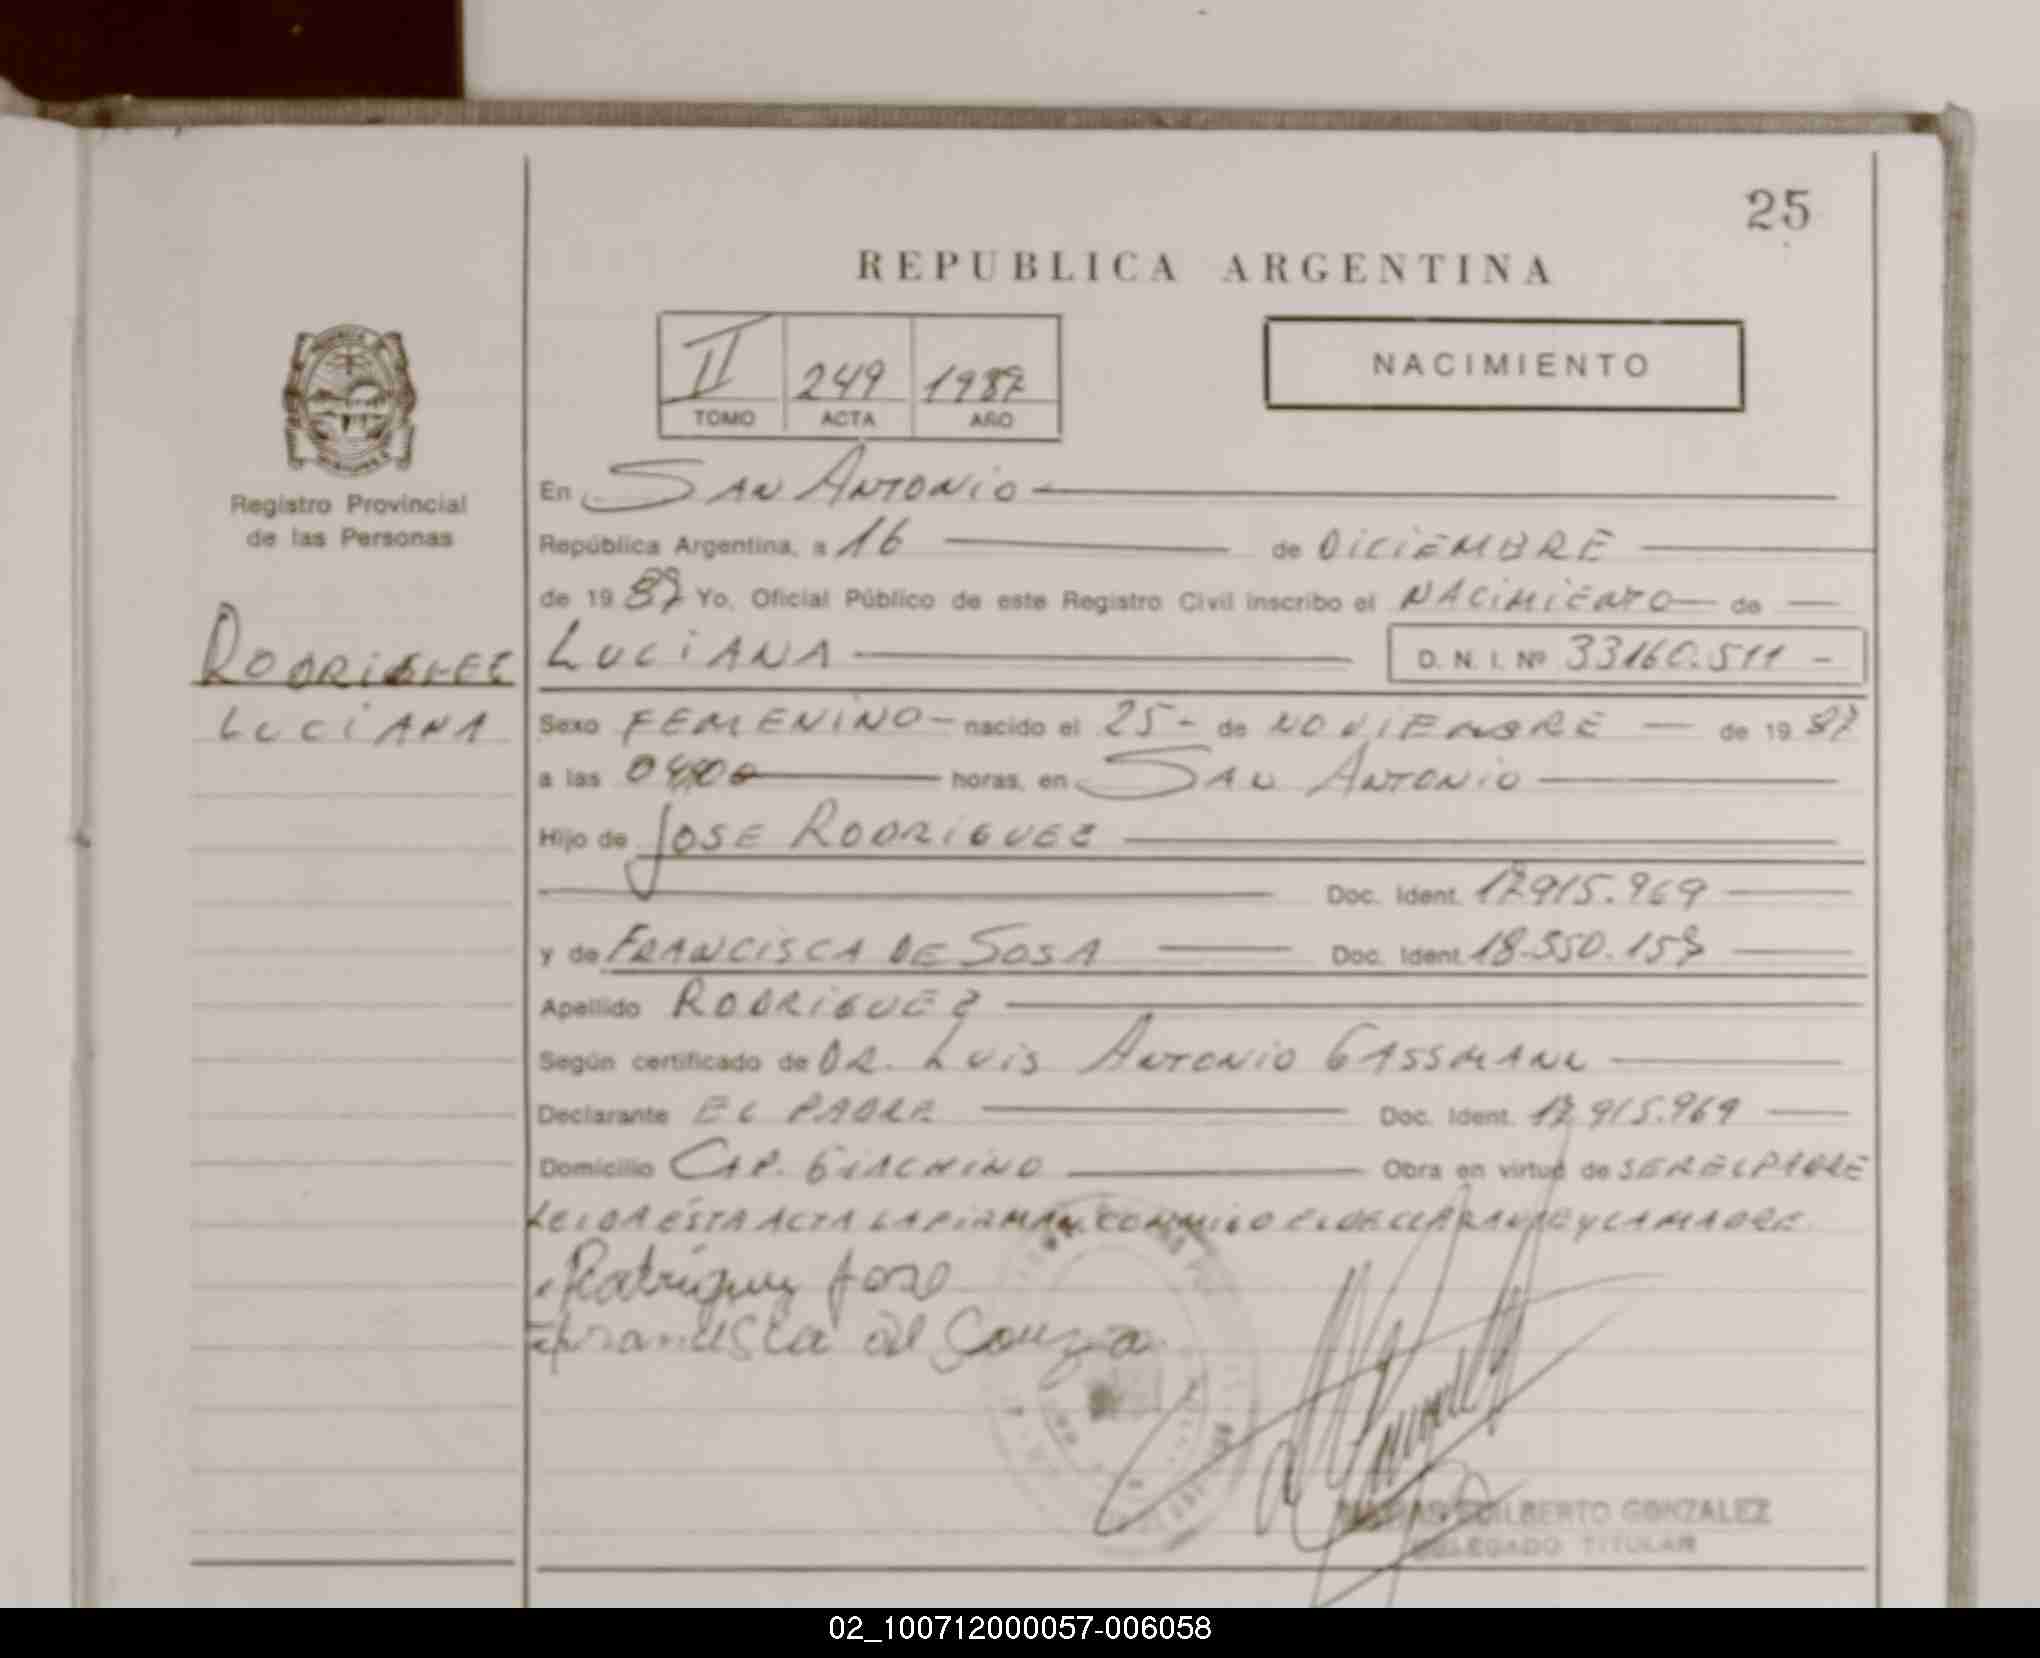 25
REPUBLICA ARGENTINA
II 249 1987
TOMO ACTA AÑO
NACIMIENTO
Registro Provincial
de las Personas
RODRIGUEZ
LUCIANA
En SAN ANTONIO
República Argentina, a 16 de DICIEMBRE
de 1987 Yo, Oficial Público de este Registro Civil inscribo el NACIMIENTO de
LUCIANA D. N. I. Nº 33160.511 -
Sexo FEMENINO - nacido el 25 - de NOVIEMBRE de 1987
a las horas, en SAN ANTONIO
Hijo de JOSE RODRIGUEZ
Doc. Ident. 17.915.969
y de FRANCISCA DE SOSA Doc. Ident. 18.550.157
Apellido RODRIGUEZ
Según certificado de DR. LUIS ANTONIO GASSMANN
Declarante EL PADRE Doc. Ident. 17.915.969
Domicilio CAP. GIACHINO Obra en virtud de SER EL PADRE
LEIDA ESTA ACTA LA FIRMAN CONMIGO EL DECLARANTE Y LA MADRE
Rodriguez Jose
Francisca de Souza
GILBERTO GONZALEZ
DELEGADO TITULAR
02_100712000057-006058